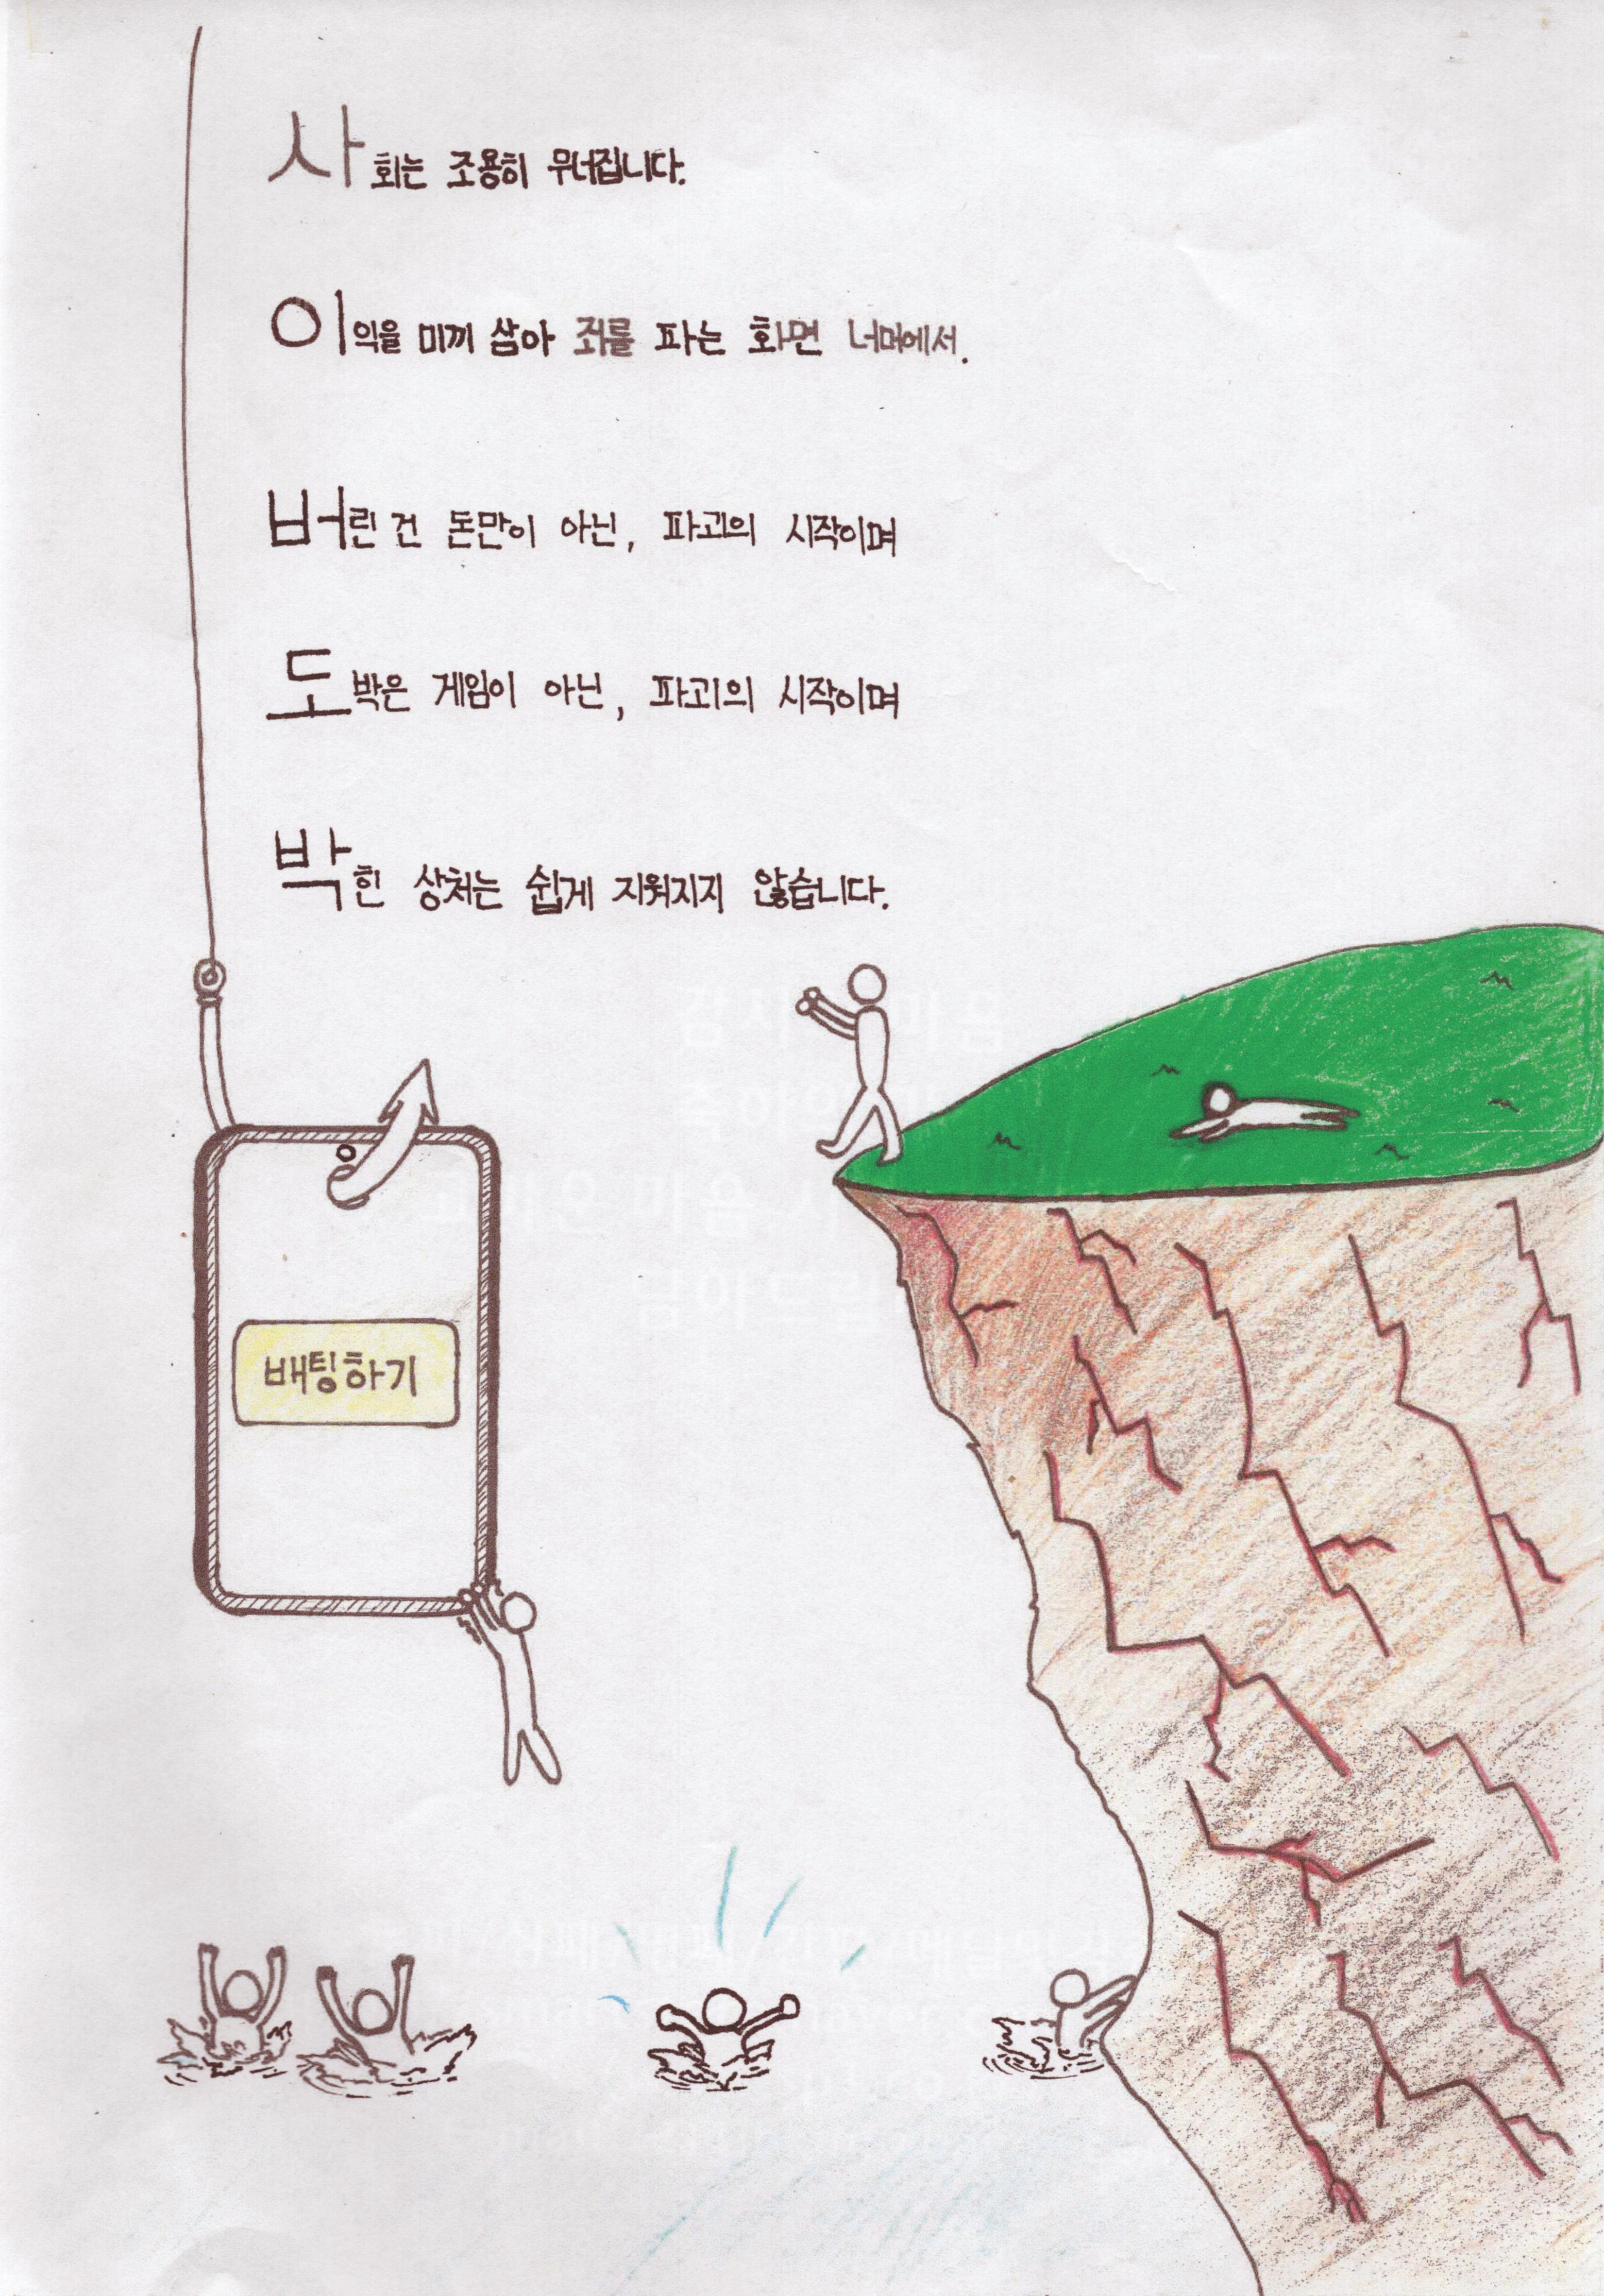 사회는 조용히 무너집니다.
이익을 미끼 삼아 죄를 파는 화면 너머에서.
버린 건 돈만이 아닌, 파괴의 시작이며
도박은 게임이 아닌, 파괴의 시작이며
박힌 상처는 쉽게 지워지지 않습니다.
배팅하기